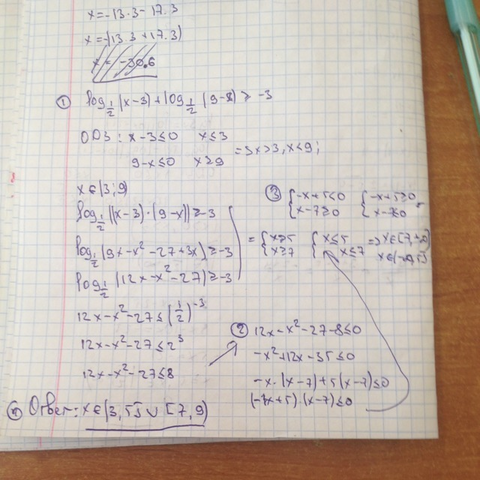 x=-13.3-17.3
x=-(13.3+17.3)
x=-30.6
① log 1/2 (x-3)+log 1/2 (9-x) ≥ -3
ОДЗ: x-3≤0 x≤3
9-x≤0 x≥9 =>x>3, x<9;
x∈(3;9)
log 1/2 ((x-3)·(9-x))≥-3
log 1/2 (9x-x²-27+3x)≥-3
log 1/2 (12x-x²-27)≥-3
12x-x²-27≤(1/2)⁻³
12x-x²-27≤2³
12x-x²-27≤8
② 12x-x²-27-8≤0
-x²+12x-35≤0
-x·(x-7)+5(x-7)≤0
(-x+5)·(x-7)≤0
③ {-x+5≤0 {-x+5≥0
{x-7≥0 {x-7≤0
= {x≥5 {x≤5 => x∈[7,+∞)
{x≥7 {x≤7 x∈(-∞,5]
④ Ответ: x∈(3,5]∪[7,9)